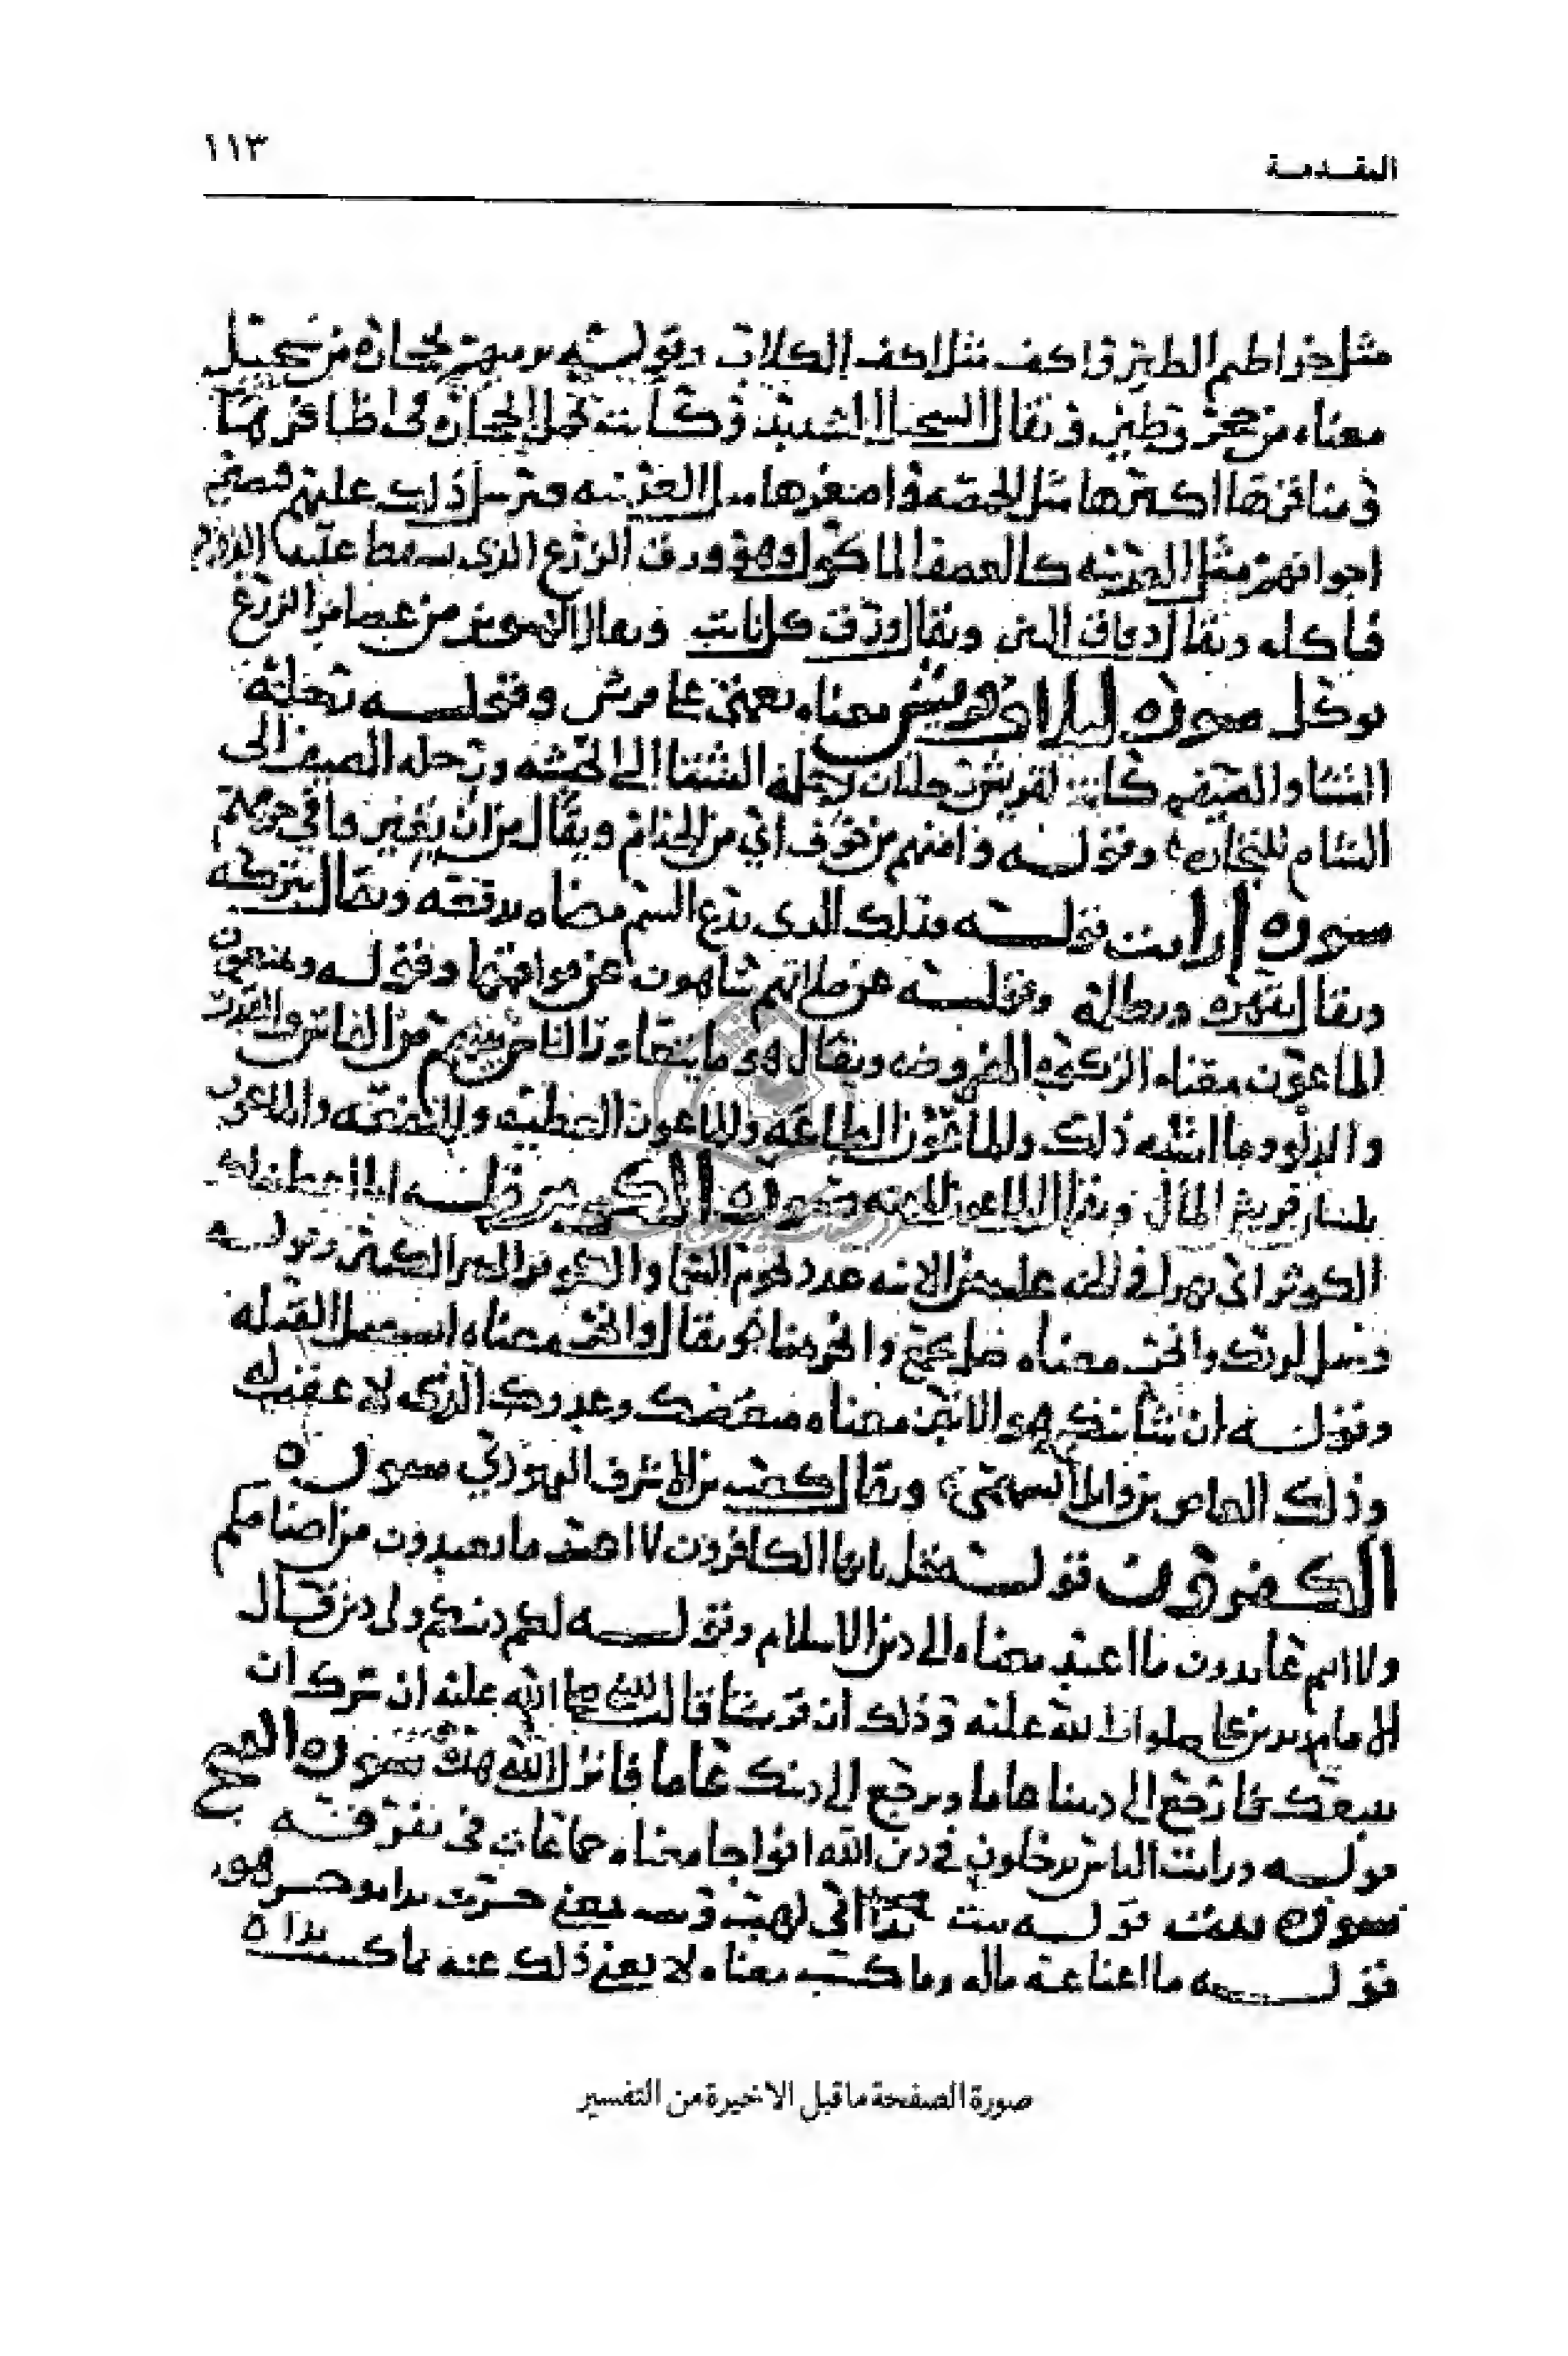 المقدمة
١١٣
مثل خراطيم الطير واكف مثل اكف الكلاب وقوله ترميهم بحجارة من سجيل
معناه من حجر وطين ويقال السجيل الشديد وكانت تحمل الحجارة في اظافرها
ومناقرها اكبرها مثل الحمصه واصغرها مثل العدسه وترسل ذلك عليهم فتصير
اجوافهم مثل كالعصف الماكول وهو ورق الزرع الذي سقط عليه الدود
فاكله ويقال دقاق التبن ويقال ورق كل نابت ويقال من الزرع
سوره لايلاف قريش معناه نعمتي على قريش وقوله رحلة
الشتا والصيف كانت لقريش رحلتان رحله الشتا الى الحبشه ورحله الصيف الى
الشام للتجاره وقوله وامنهم من خوف اي من الجذام ويقال من ان يغير في حرمهم
سوره ارايت قوله فذلك الذي يدع اليتيم معناه يدفعه ويقال يتركه
ويقال يقهره ويظلمه وقوله عن صلاتهم ساهون عن مواقيتها وقوله ويمنعون
الماعون معناه الزكوه المفروضه ويقال هو ما يتعاور الناس بينهم من الفاس والقدر
والدلو وما اشبه ذلك والماعون الطاعه والماعون العطيه والمنفعه والماعون
بلسان قريش المال ويقال الماعون سوره الكوثر قوله انا اعطيناك
الكوثر اي نهرا في الجنه عليه من الانيه عدد نجوم السما والكوثر الخير الكثير وقوله
فصل لربك وانحر معناه صل بجمع وانحر بمنا ويقال وانحر معناه استقبل القبله
وقوله ان شانئك هو الابتر معناه مبغضك وعدوك الذي لا عقب له
وذلك العاص بن وايل السهمي ويقال كعب بن الاشرف اليهودي سوره
الكفرون قوله قل يا ايها الكافرون لا اعبد ما تعبدون من اصنامكم
ولا انتم عابدون ما اعبد معناه الى دين الاسلام وقوله لكم دينكم ولي دين قال
الامام زيد بن علي صلوات الله عليه وذلك ان قريشا قالت للنبي صلى الله عليه ان سرك ان
نتبعك فارجع الى ديننا عاما ونرجع الى دينك عاما فانزل الله هذه السوره سوره الفتح
قوله ورايت الناس يدخلون في دين الله افواجا معناه جماعات في تفرقه
سوره تبت قوله تبت يدا ابي لهب وتب يعني خسرت يدا وخسر هو
قوله ما اغنا عنه ماله وما كسب معناه لا يغني ذلك عنه ما كسبت يداه
صورة الصفحة ما قبل الاخيرة من التفسير